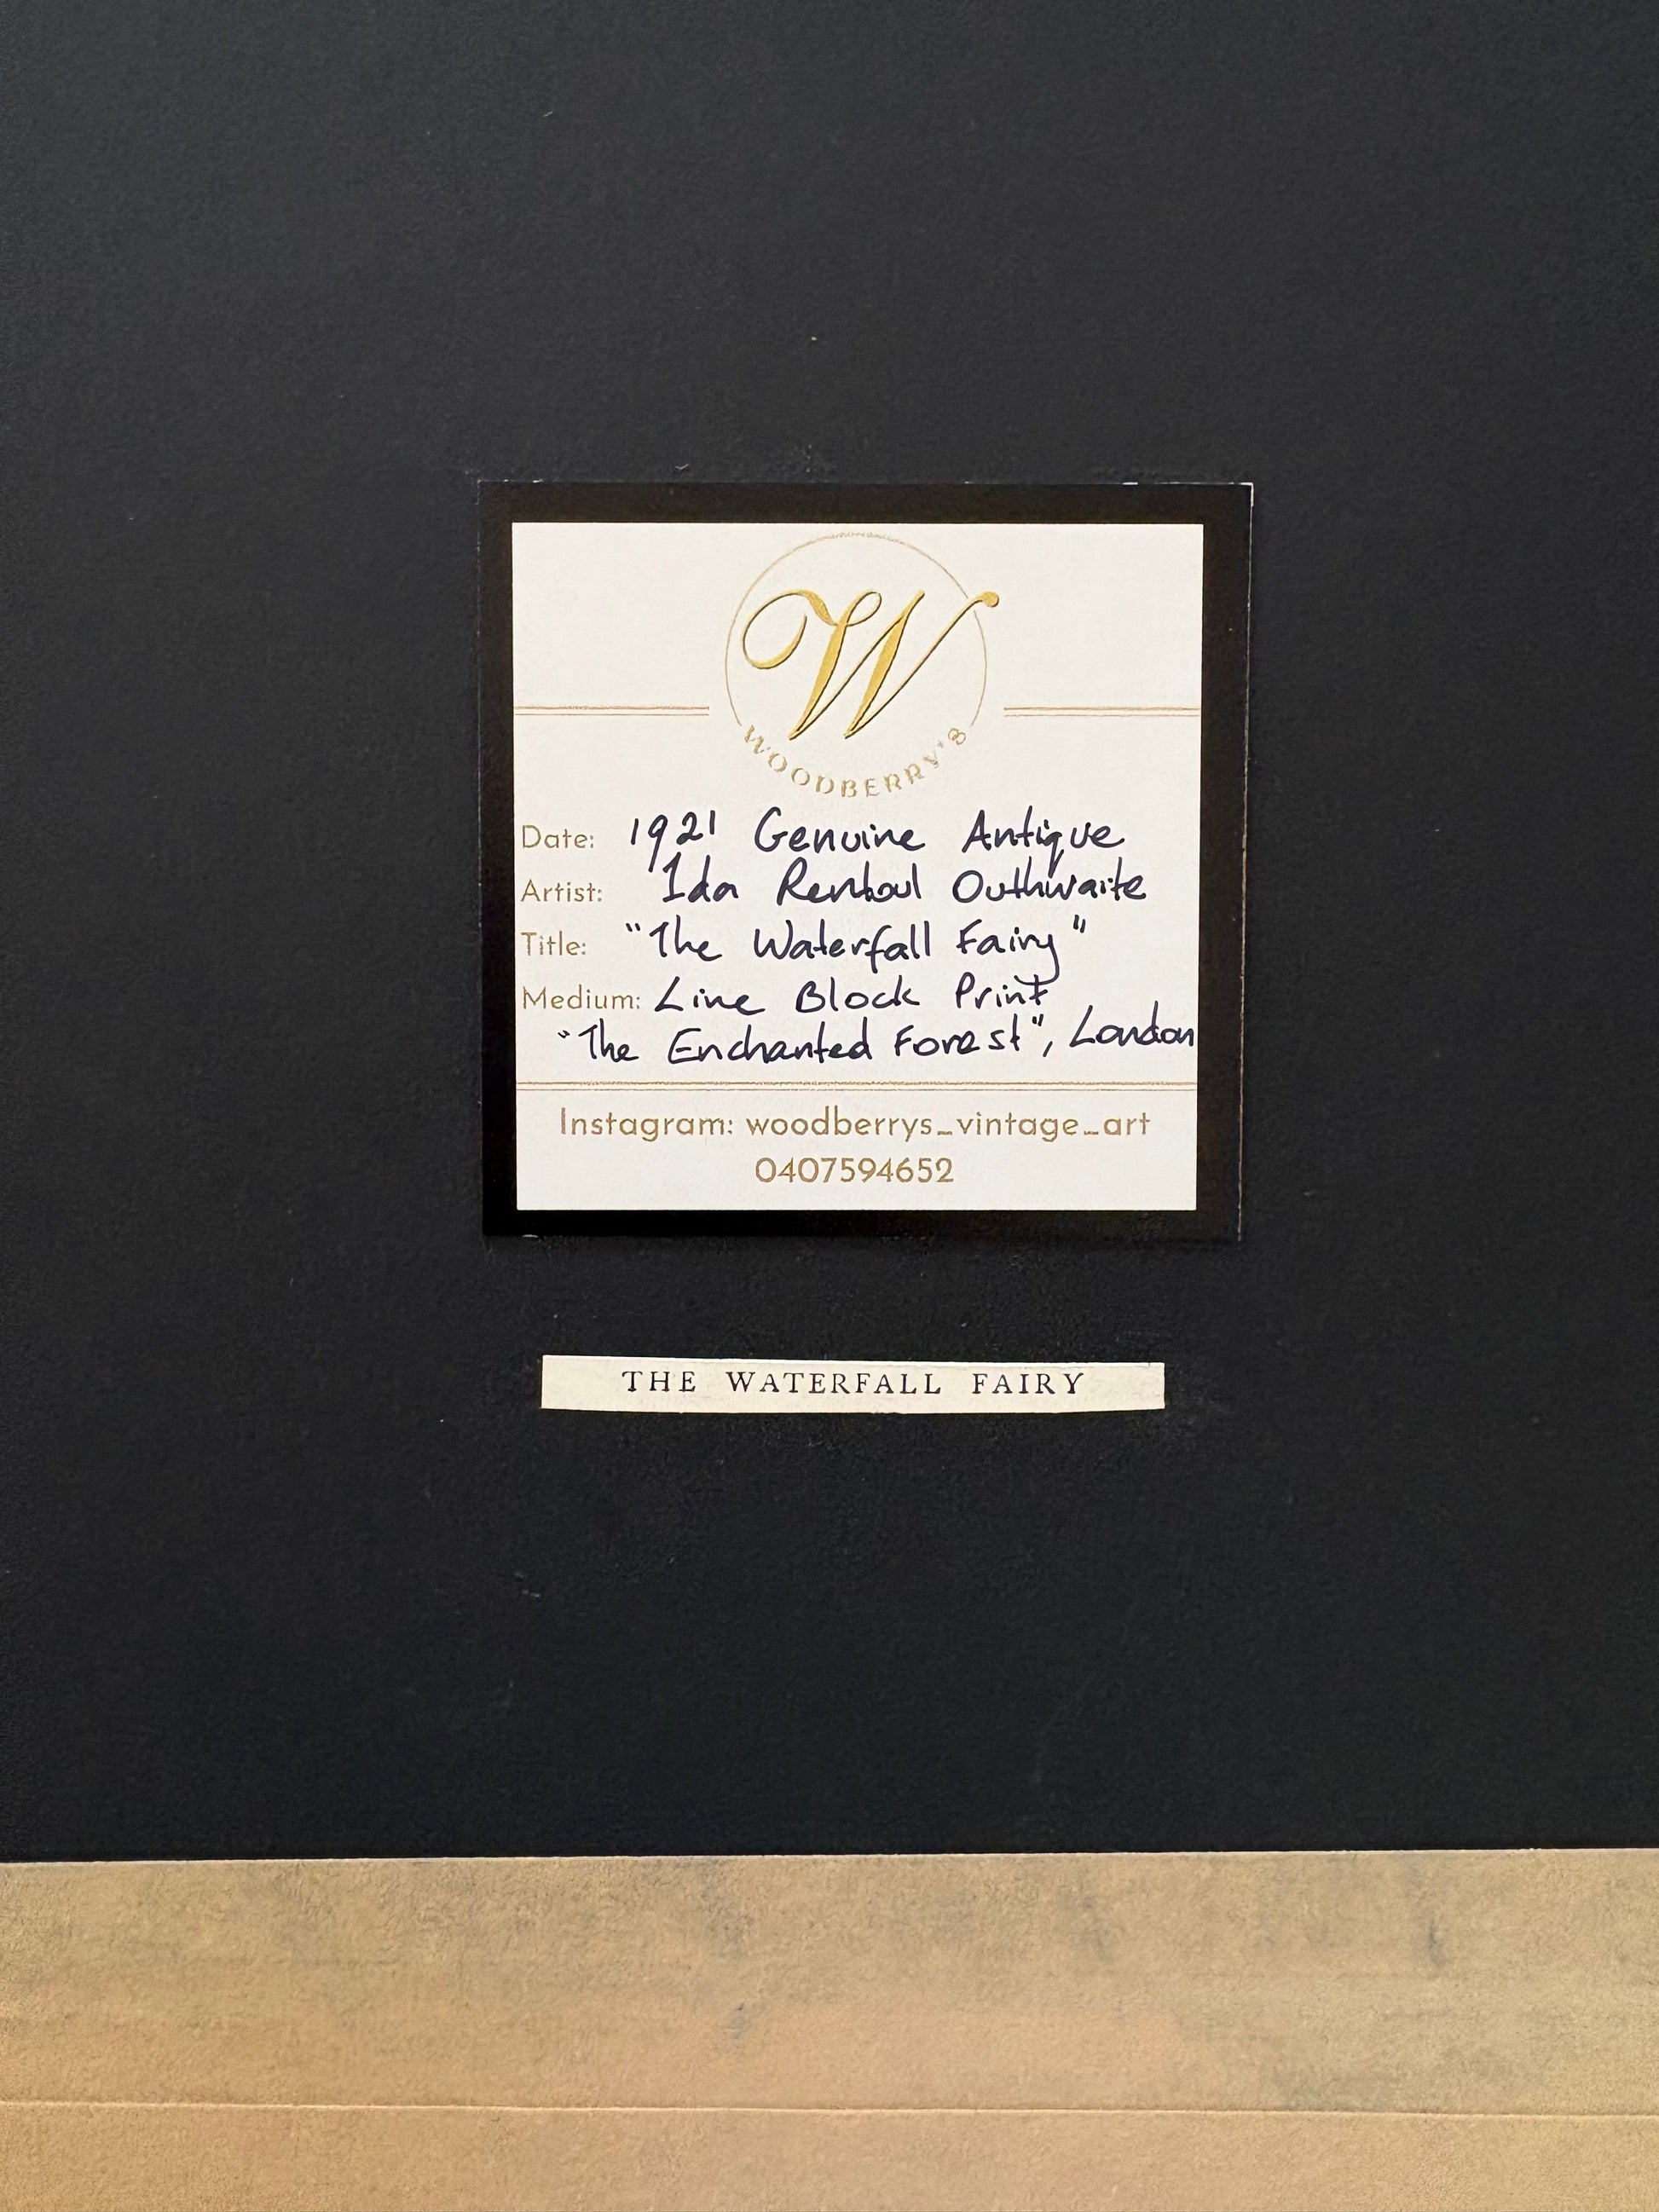 W
WOODBERRY'S
Date: 1921 Genuine Antique
Artist: Ida Rentoul Outhwaite
Title: "The Waterfall Fairy"
Medium: Line Block Print
"The Enchanted Forest", London
Instagram: woodberrys_vintage_art
0407594652
THE WATERFALL FAIRY